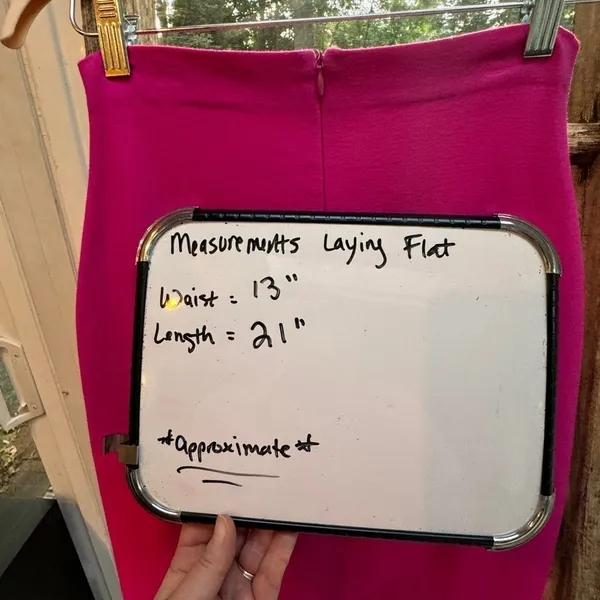 Measurements Laying Flat
Waist = 13"
Length = 21"
*approximate*